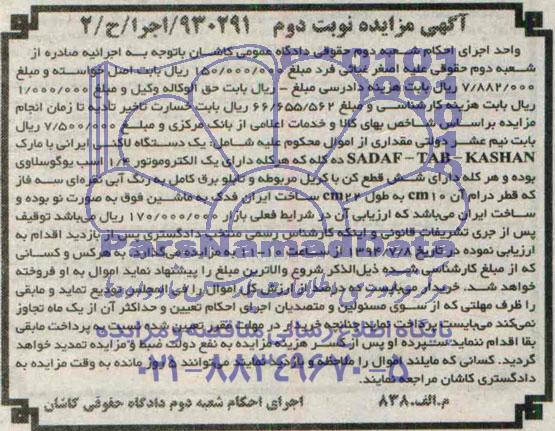 آگهی مزایده نوبت دوم ۹۳۰۲۹۱/اجرا/ح/۲
واحد اجرای احکام شعبه دوم حقوقی دادگاه عمومی کاشان باتوجه به اجرائیه صادره از
شعبه دوم حقوقی علیه اصغر غیاثی فرد مبلغ ۱۵۰/۰۰۰/۰۰۰ ریال بابت اصل خواسته و مبلغ
۷/۸۸۲/۰۰۰ ریال بابت هزینه دادرسی مبلغ - ریال بابت حق الوکاله وکیل و مبلغ ۱/۰۰۰/۰۰۰
ریال بابت هزینه کارشناسی و مبلغ ۶۶/۶۵۵/۵۶۲ ریال بابت خسارت تاخیر تادیه تا زمان انجام
مزایده براساس شاخص بهای کالا و خدمات اعلامی از بانک مرکزی و مبلغ ۷/۵۰۰/۰۰۰ ریال
بابت نیم عشر دولتی مقداری از اموال محکوم علیه شامل: یک دستگاه لاکنی ایرانی با مارک
SADAF – TAB – KASHAN ده کله که هرکله دارای یک الکتروموتور ۱/۴ اسب یوگوسلاوی
بوده و هر کله دارای شش قطع کن با کریل مربوطه و تابلو برق کامل به رنگ آبی نقره‌ای سه فاز
که قطر درام آن cm۱۰ به طول cm۲۲ ساخت ایران فدک به ماشین فوق به صورت نو بوده و
ساخت ایران می‌باشد که ارزیابی آن در شرایط فعلی بازار ۱۷۰/۰۰۰/۰۰۰ ریال می‌باشد توقیف
پس از جری تشریفات قانونی و اینکه کارشناس رسمی منتخب دادگستری پس از بازدید اقدام به
ارزیابی نموده در تاریخ ۱۳۹۴/۷/۸ از ساعت ۱۰-۱۱ به مزایده می‌گذارد. به هرکس و کسانی
که از مبلغ کارشناسی شده ذیل‌الذکر شروع والاترین مبلغ را پیشنهاد نماید اموال به او فروخته
خواهد شد. خریدار می‌بایست ده درصد از ارزش کل اموال را فی المجلس تودیع نماید و مابقی
را ظرف مهلتی که از سوی مسئولین و متصدیان اجرای احکام تعیین و حداکثر آن از یک ماه تجاوز
نمی‌کند می‌بایست پرداخت نماید چنانچه خریدار در مواعد مقرر تعیین شده نسبت به پرداخت مابقی
بقا اقدام ننماید سپرده او پس از کسر هزینه مزایده به نفع دولت ضبط و مزایده تمدید خواهد
گردید. کسانی که مایلند اموال را ملاحظه و بازدید نمایند می‌توانند ۵ روز مانده به وقت مزایده به
دادگستری کاشان مراجعه نمایند.
م.الف. ۸۳۸ اجرای احکام شعبه دوم دادگاه حقوقی کاشان
ParsNamadData
پایگاه اطلاع رسانی مناقصه و مزایده
۰۲۱-۸۸۳۴۹۶۷۰-۵